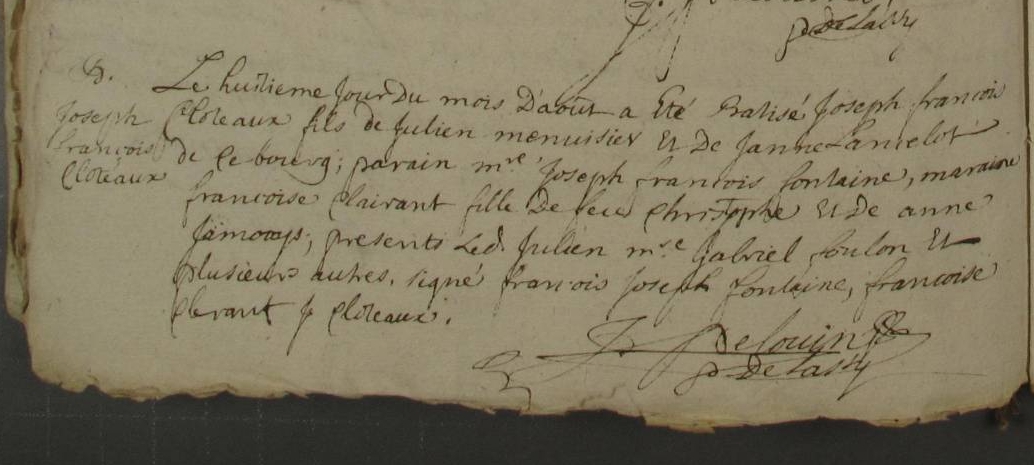 p DeLassy
B.
Joseph
françois
Cloteaux
Le huitieme jour Du mois D'aout a Eté Batisé Joseph françois
Cloteaux fils de Julien menuisier Et De Janne Lancelot
de Ce bourg; parain mre Joseph francois fontaine, maraine
francoise Clairant fille De feu Christophe Et De anne
Jamoays; presents Led. Julien mre Gabriel foulon Et
plusieurs autres. signé francois Joseph fontaine, francoise
Clerant J Cloteaux.
J Delouin
p DeLassy